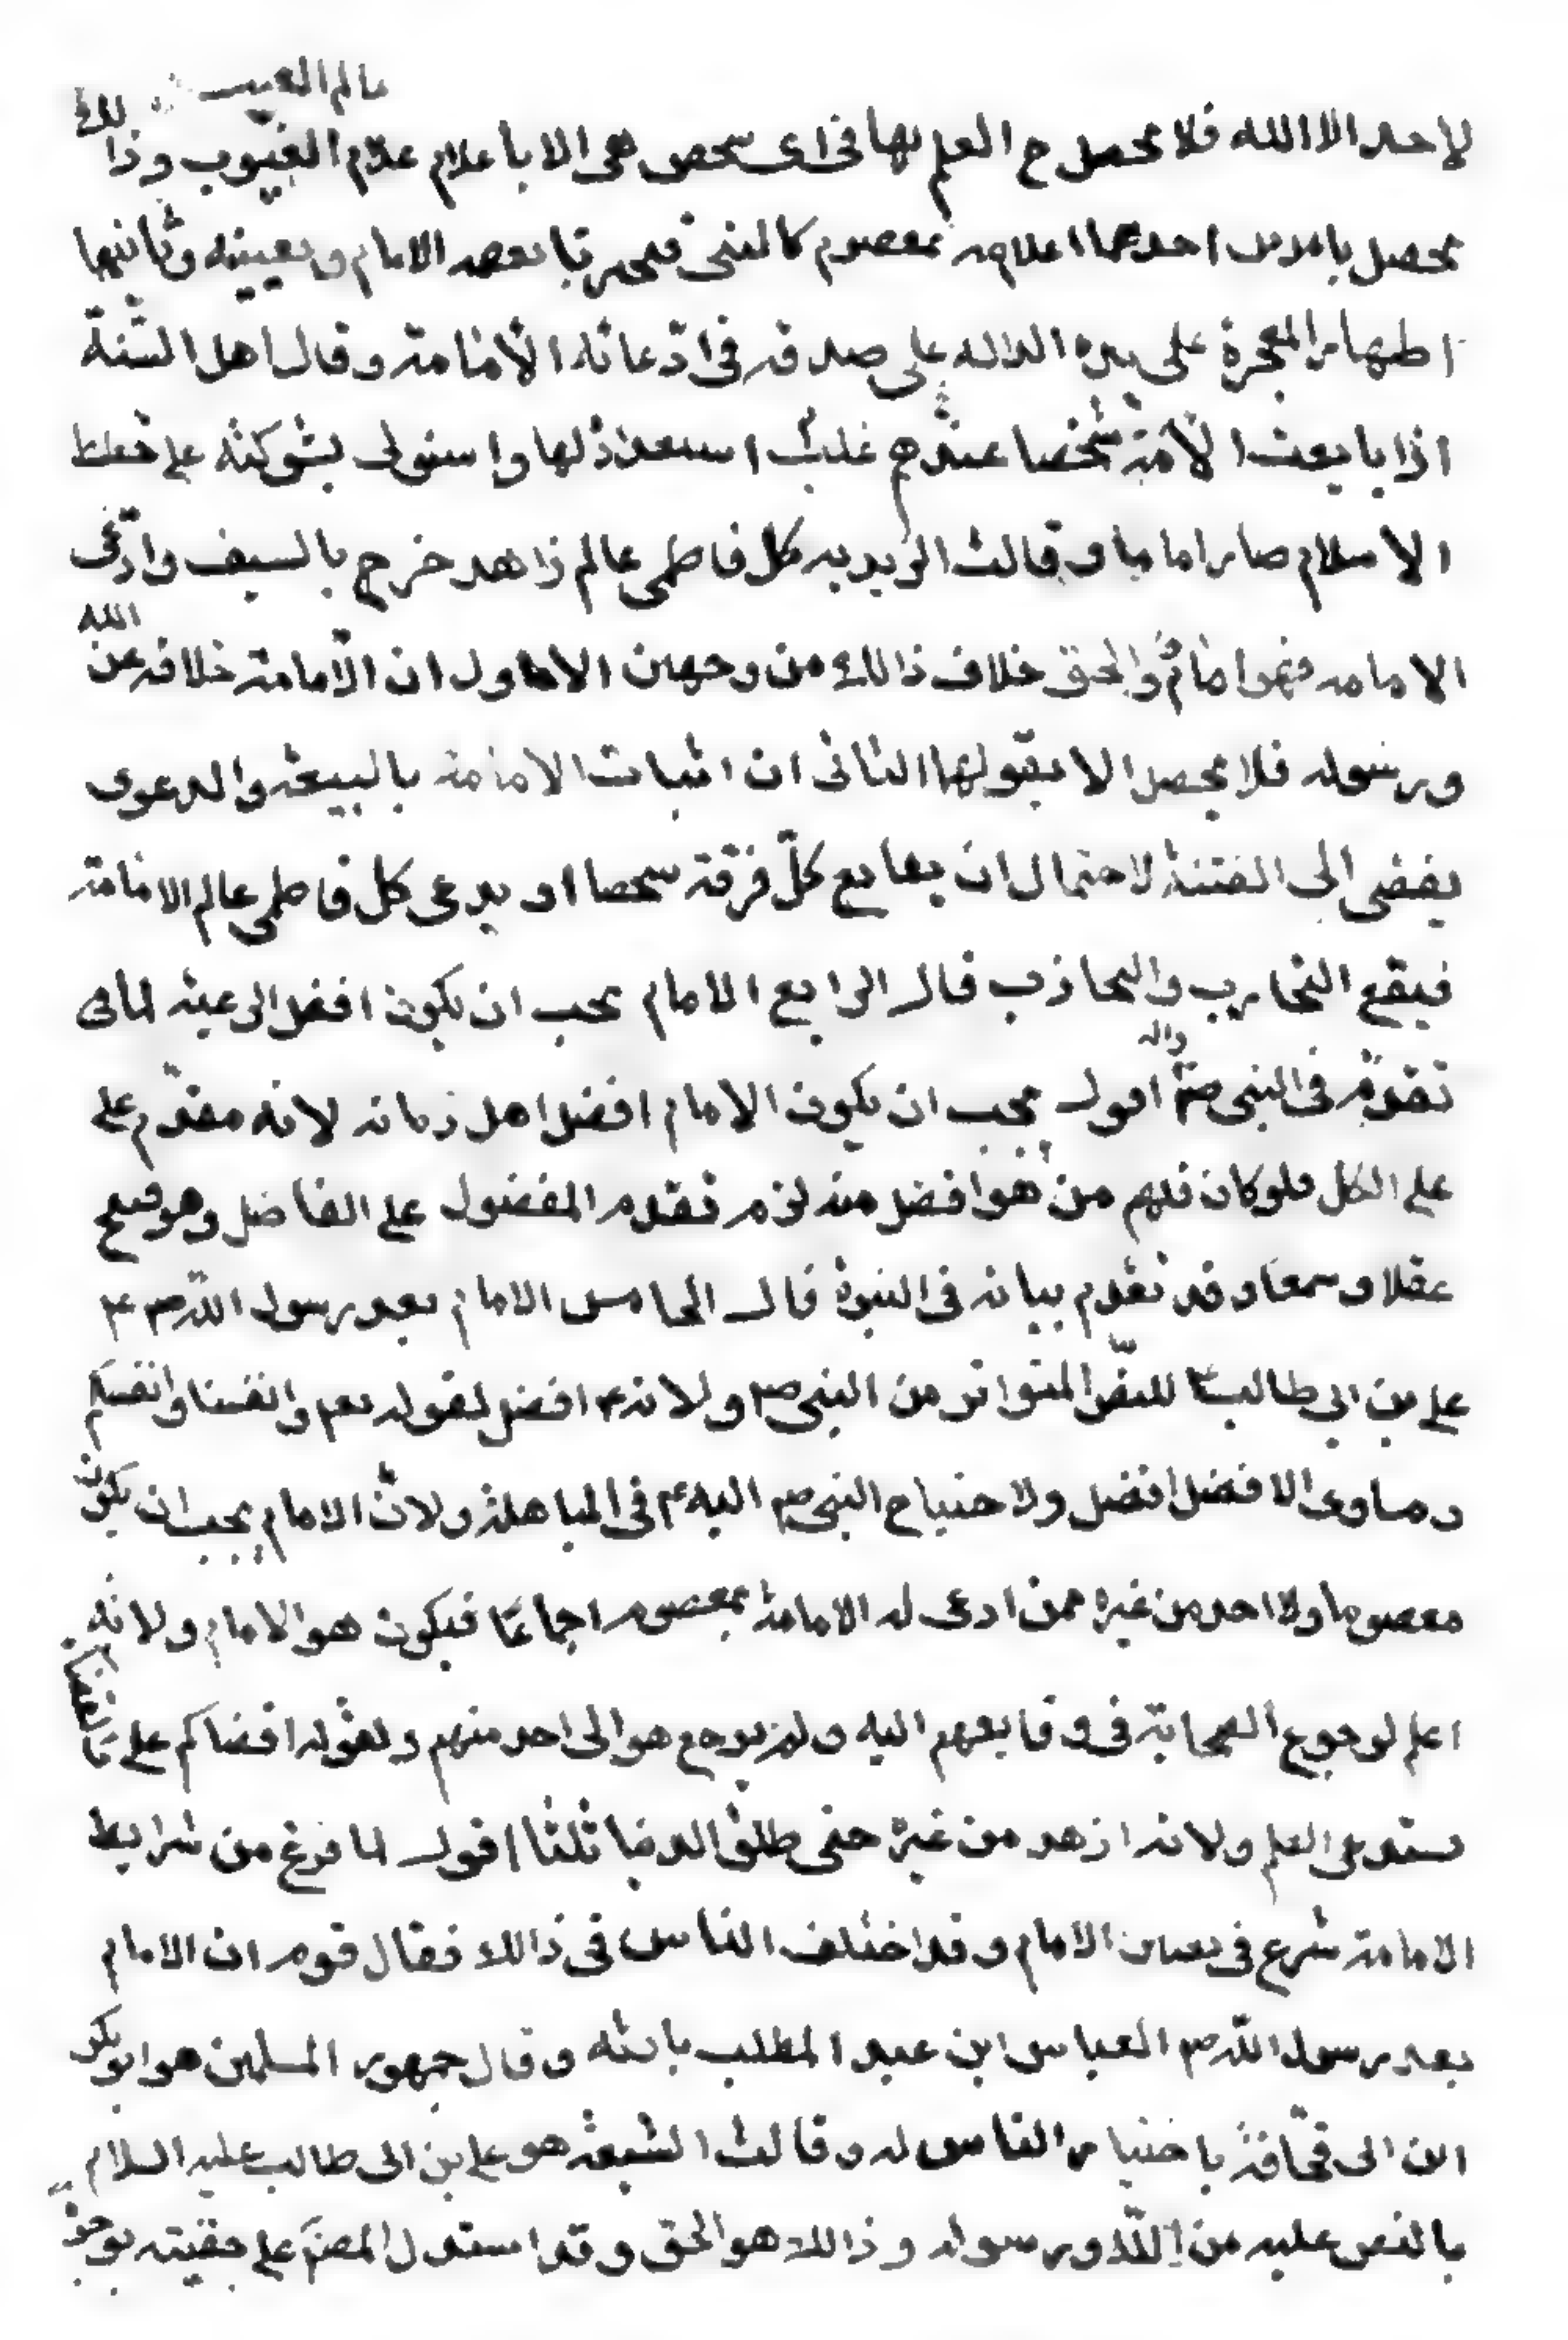 عالم الغيب
لاحد الا الله فلا يحصل ح العلم بها في اى شخص هي الا باعلام علام الغيوب وذلك
يحصل بامرين احدهما اعلامه بمعصوم كالنبي فيخبرنا بعصمه الامام وبعيينه وثانيهما
اظهار المعجزة على يده الداله على صدقه في ادعائه الأمامة وقال اهل السنة
اذا بايعت الأمة شخصا عندهم غلب استعداد لها واستولى بشوكته على خطط
الاسلام صار اماما و قالت الزيديه كل فاطمى عالم زاهد خرج بالسيف وادعى
الامامه فهو امام والحق خلاف ذالك من وجهين الاول ان الأمامة خلافه عن الله
ورسوله فلا يحصل الا بقولهما الثاني ان اثبات الامامة بالبيعة والدعوى
يفضى الى الفتنة لاحتمال ان يبايع كل فرقة شخصا او يدعى كل فاطمى عالم الامامة
فيقع التحارب والتجاذب قال الرابع الامام يجب ان يكون افضل الرعية لما
تقدم في النبي ص واله اقول يجب ان يكون الامام افضل اهل زمانه لانه مقدم على
على الكل فلو كان فيهم من هو افضل منه لزم تقدم المفضول على الفاضل وهو قبيح
عقلا وسمعا وقد تقدم بيانه في النبوة قال الخامس الامام بعد رسول الله ص
على بن ابي طالب ع للنص المتواتر من النبي ص ولانه ع افضل لقوله تعم وانفسنا وانفسكم
ومساوى الافضل افضل ولاحتياج النبي ص اليه ع في المباهلة ولان الامام يجب ان يكون
معصوما ولا احد من غيره ممن ادعى له الامامة بمعصوم اجماعا فيكون هو الامام ولانه
اعلم لرجوع الصحابة في وقايعهم اليه ولم يرجع هو الى احد منهم ولقوله اقضاكم على والقضاء
يستدعى العلم ولانه ازهد من غيره حتى طلق الدنيا ثلثا اقول لما فرغ من شرايط
الامامة شرع في تعيين الامام وقد اختلف الناس في ذالك فقال قوم ان الامام
بعد رسول الله ص العباس ابن عبد المطلب بارثه وقال جمهور المسلمين هو ابوبكر
ابن ابى قحافة باختيار الناس له وقالت الشيعة هو على بن ابى طالب عليه السلام
بالنص عليه من الله ورسوله وذالك هو الحق وقد استدل المصنف على حقيته بوجوه